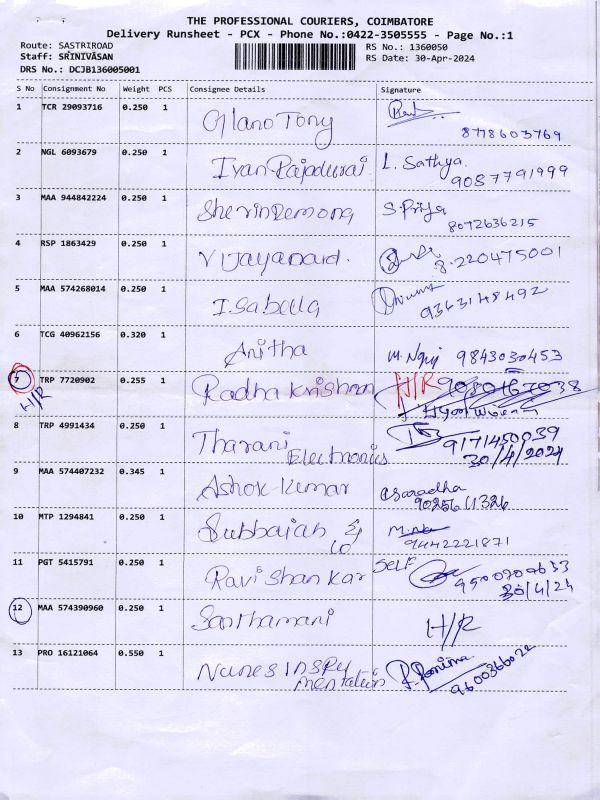 THE PROFESSIONAL COURIERS, COIMBATORE
Delivery Runsheet - PCX - Phone No.:0422-3505555 - Page No.:1
Route: SASTRIROAD
RS No.: 1360050
Staff: SRINIVASAN
RS Date: 30-Apr-2024
DRS No.: DCJB136005001
S No Consignment No Weight PCS Consignee Details Signature
1 TCR 29093716 0.250 1 Gilano Tony
8778603769
2 NGL 6093679 0.250 1 Ivan Rajadurai L. Sathya.
9087791999
3 MAA 944842224 0.250 1 Sherin Demong S. Priya
8072636215
4 RSP 1863429 0.250 1 Vijayanand.
8.220475001
5 MAA 574268014 0.250 1 Isabella
9363148492
6 TCG 40962156 0.320 1 Anitha 9843030453
7 TRP 7720902 0.255 1 Radha Krishnan H/R
H/R
8 TRP 4991434 0.250 1 Tharani Electronics 9171450039
30/4/2024
9 MAA 574407232 0.345 1 Ashok Kumar Saradha
9025611326
10 MTP 1294841 0.250 1 Subbaiah & Co
9442221871
11 PGT 5415791 0.250 1 Ravi Shankar SELF
30/4/24
12 MAA 574390960 0.250 1 Santhamani H/R
13 PRO 16121064 0.550 1 mentation
9600366022